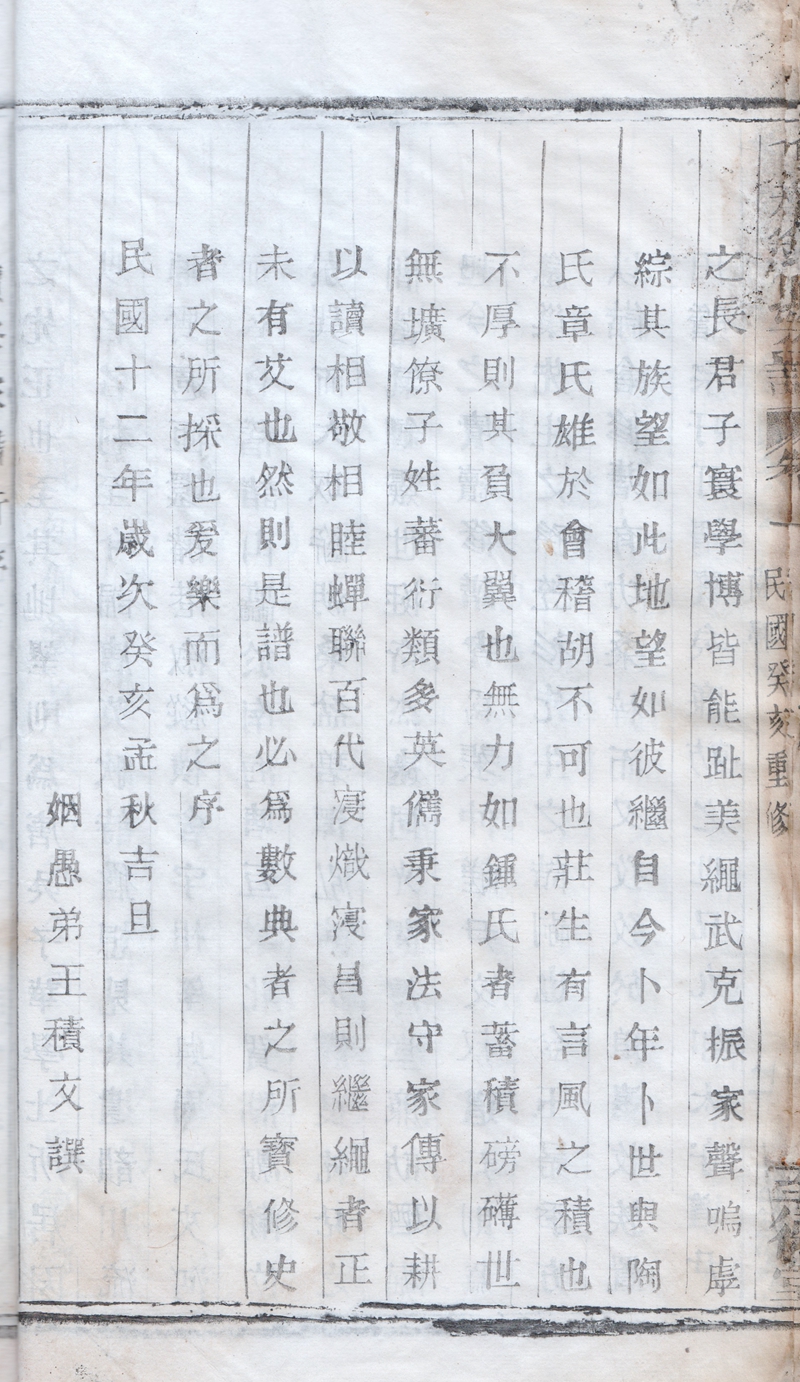 民國癸亥重修
之長君子寰學博皆能趾美繩武克振家聲嗚虖
綜其族望如此地望如彼繼自今卜年卜世與陶
氏章氏雄於會稽胡不可也莊生有言風之積也
不厚則其負大翼也無力如鍾氏者蓄積磅礴世
無壙僚子姓蕃衍類多英儁秉家法守家傳以耕
以讀相敬相睦蟬聯百代寖熾寖昌則繼繩者正
未有艾也然則是譜也必為數典者之所寶修史
者之所採也爰樂而爲之序
民國十二年歲次癸亥孟秋吉旦
姻愚弟王積文譔